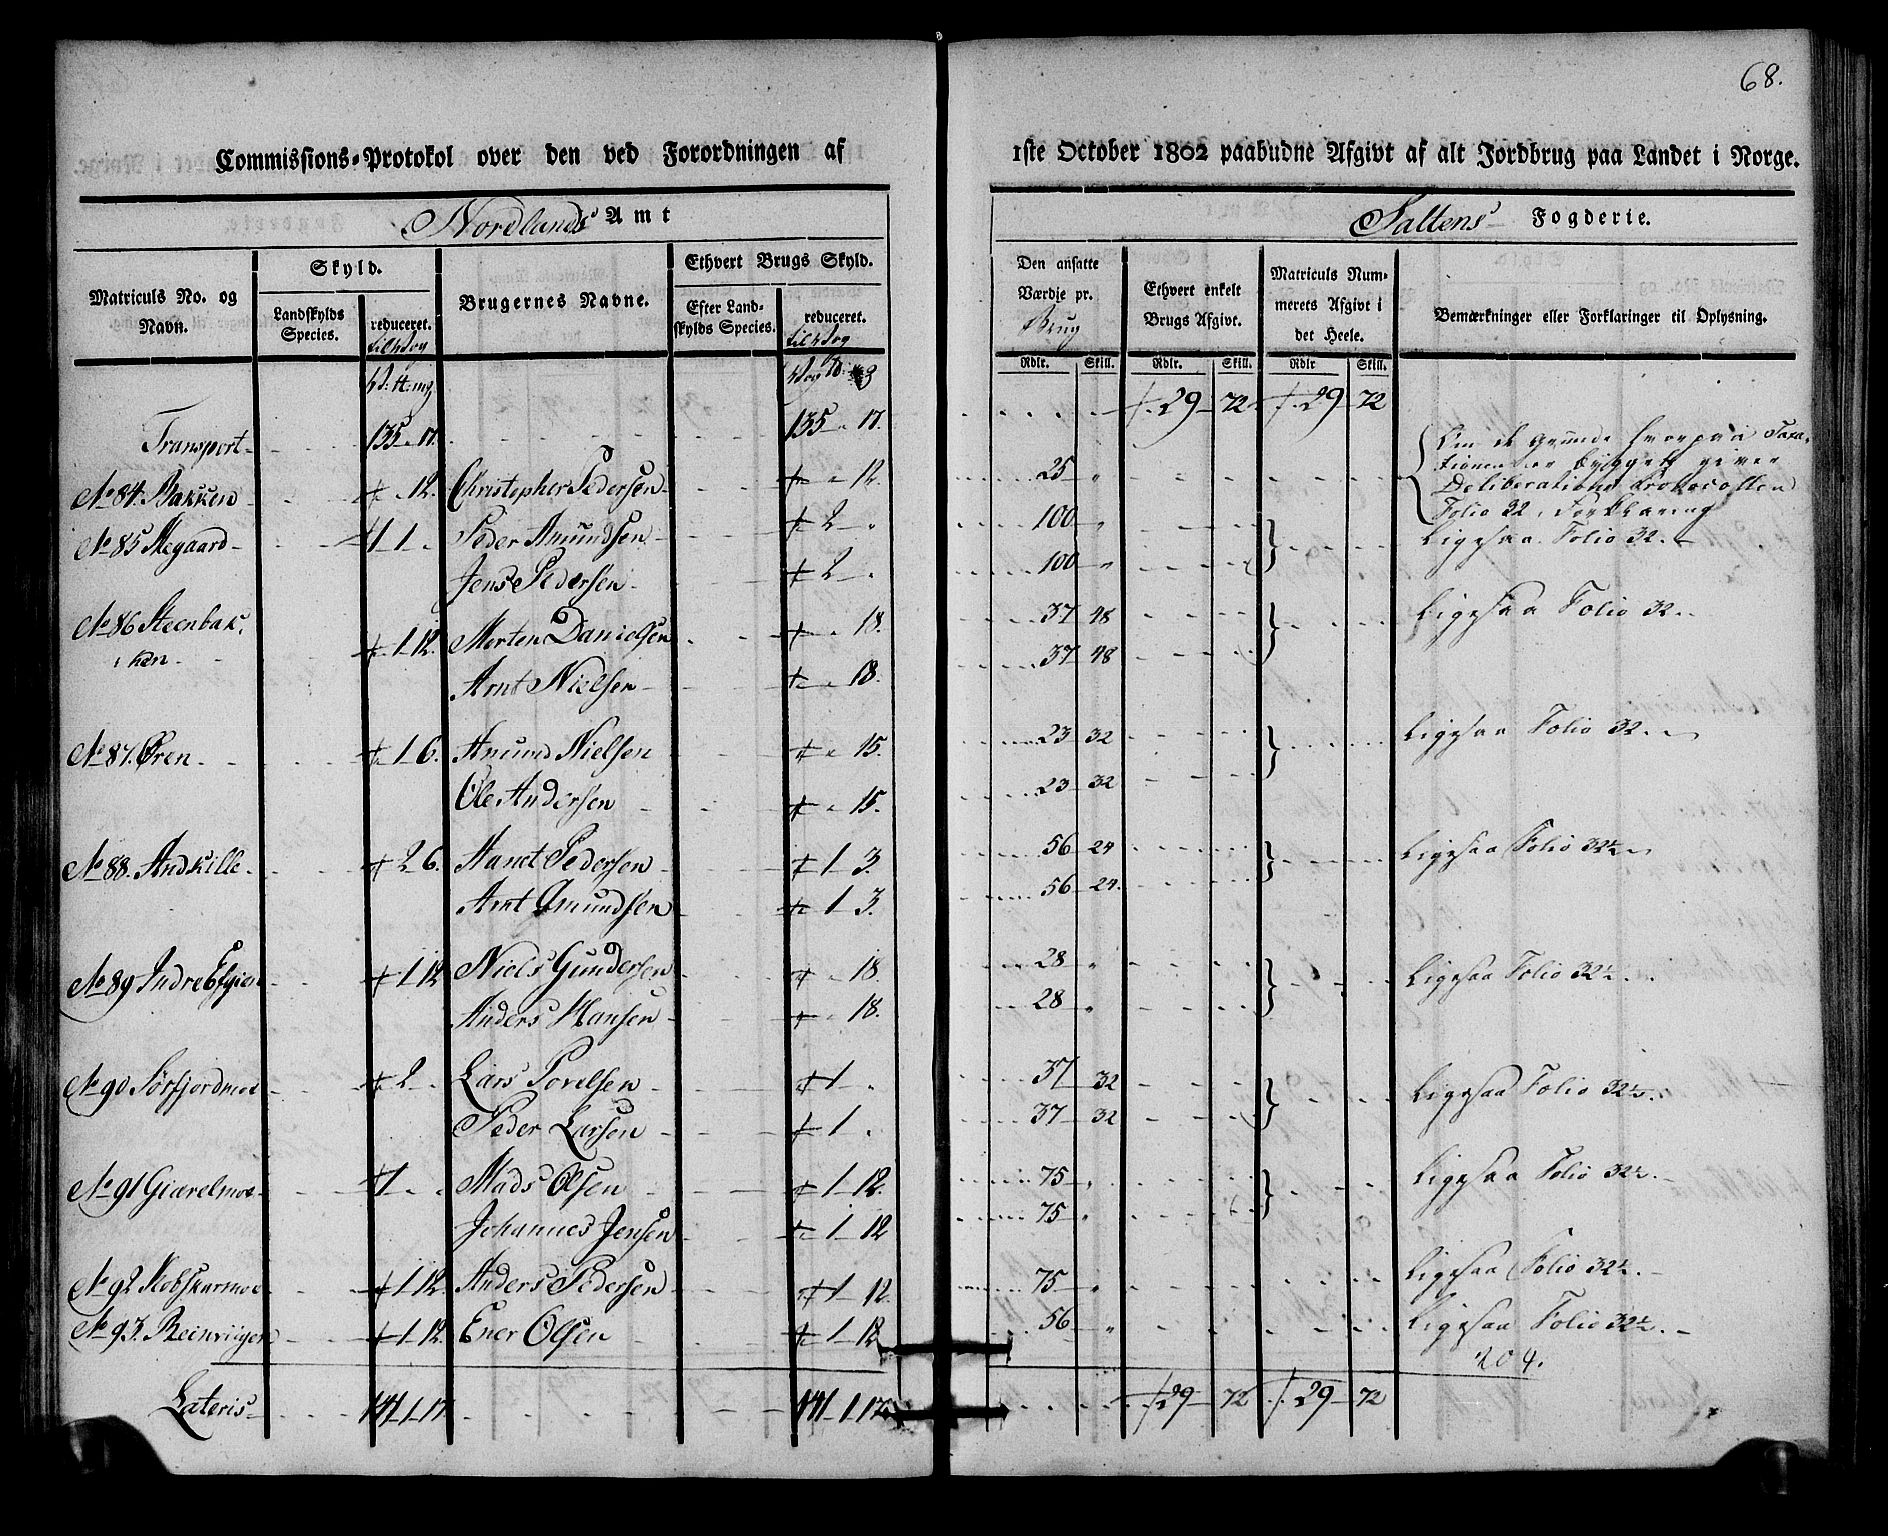 68.
Commissions-Protokol over den ved Forordningen af 1ste October 1802 paabudne Afgivt af alt Jordbrug paa Landet i Norge.
Nordlands Amt
Saltens Fogderie.
Matriculs No. og Navn.
Skyld.
Landskylds Species.
reduceret.
Brugernes Navne.
Ethvert Brugs Skyld.
Efter Landskylds Species.
reduceret.
Den ansatte Værdje pr. Brug
Rdlr. Skill.
Ethvert enkelt Brugs Afgivt.
Rdlr. Skill.
Matriculs Nummerets Afgivt i det Heele.
Rdlr Skill.
Bemærkninger eller Forklaringer til Oplysning.
Transport 135 " 17. 135 " 17. 29 72 29 72
No 84. Bakken " 12. Christopher Pedersen " 12. 25 " Om de Grunde hvorpaa Taxationen er bygget giver Deliberations Protocollen Folio 32, Forklaring
No 85 Aegaard 1 " Peder Amundsen 2 " 100 " Ligesaa Folio 32.
Jens Pedersen 2 " 100 "
No 86 Steenbakken 1 12. Morten Danielsen " 18. 37 48 Ligesaa Folio 32.
Arnt Nielsen " 18. 37 48
No 87. Øren 1 6. Amund Nielsen " 15. 23 32 Ligesaa Folio 32.
Ole Andersen " 15. 23 32
No 88. Andkille 2 6. Pedersen 1 3. 56 24 Ligesaa Folio 32½
Arnt Amundsen 1 3. 56 24.
No 89 Indre 1 12 Niels Gundersen " 18. 28 " Ligesaa Folio 32½
Anders Hansen " 18. 28 "
No 90 Sørfjordmoe 2 " Lars Povelsen 1 " 37 32 Ligesaa Folio 32½.
Peder Larsen 1 " 37 32
No 91 Giærelmoe 1 " Mads Olsen 1 12. 75 " Ligesaa Folio 32½.
Johannes Jensen 1 12 75 "
No 92 1 12. Anders Pedersen 1 12. 75 " Ligesaa Folio 32½.
No 93. Reinviigen 1 12. Ener Olsen 1 12 56 " Ligesaa Folio 32½.
204.
Lateris 141 1 17. 141 1 17. 29 72 29 72